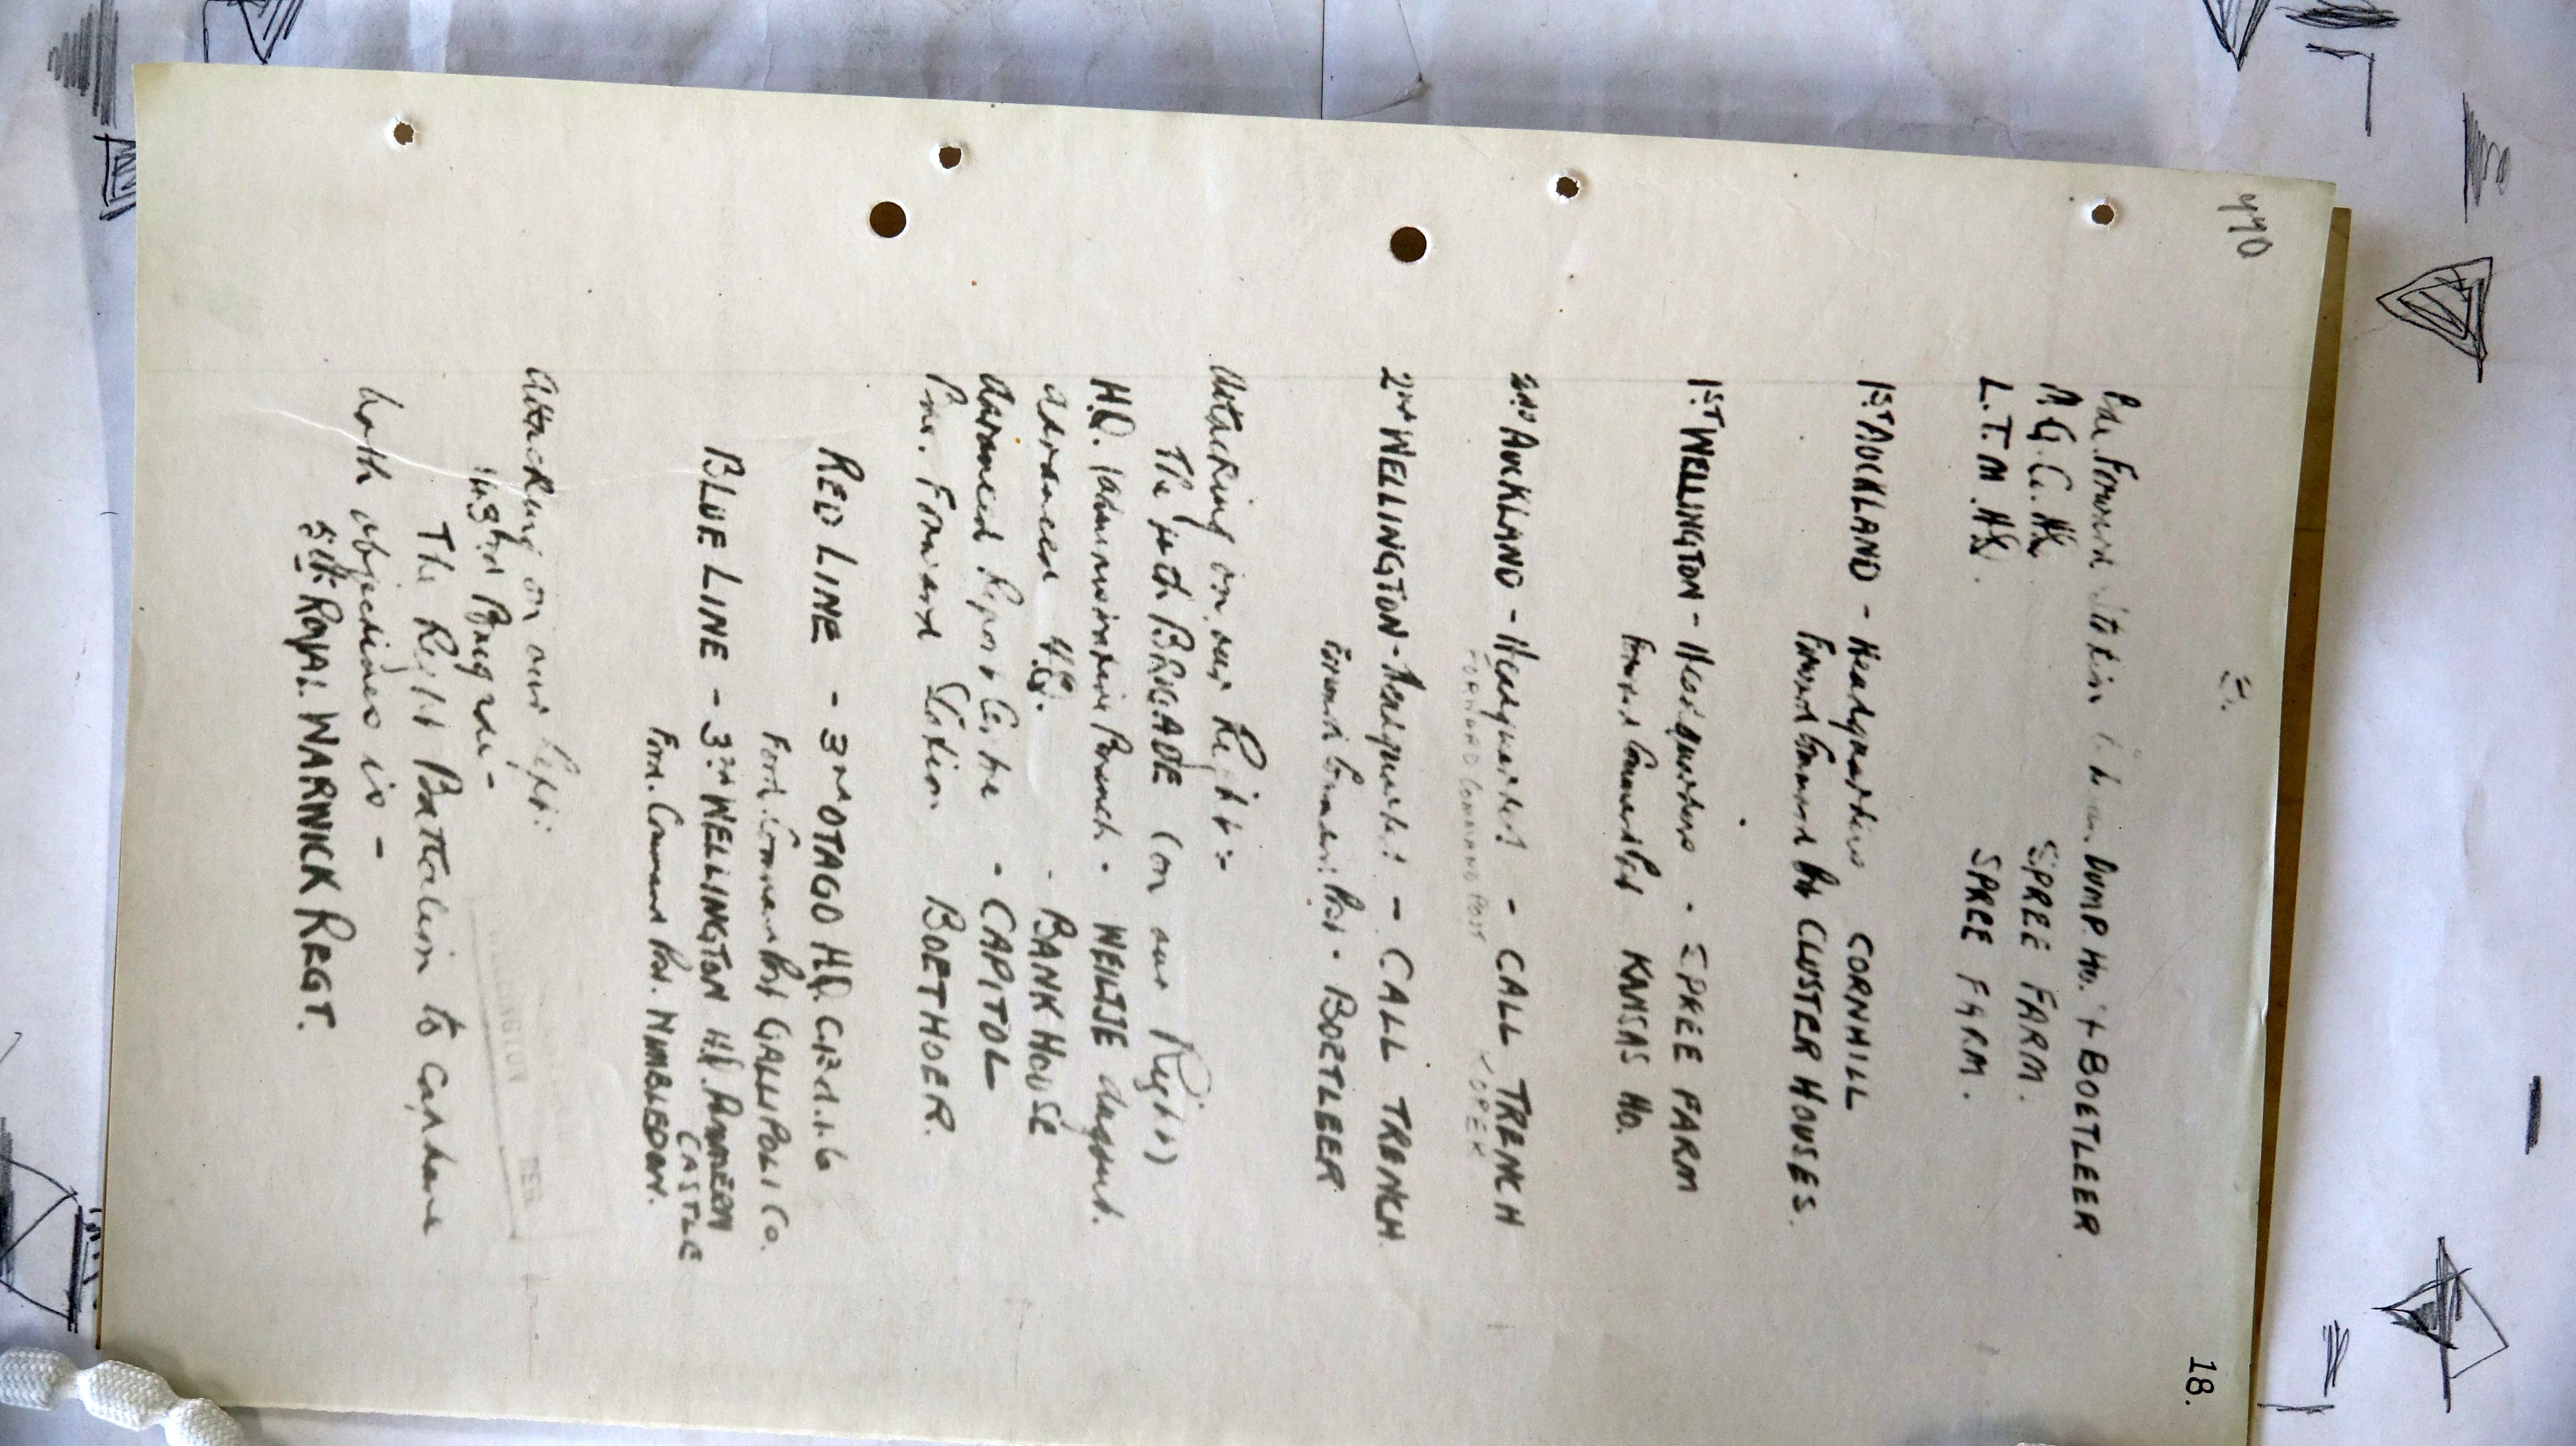 440
2.
18.
Bde. Forward Station between DUMP HO. + BOETLEER
M.G.Co. HQ. SPREE FARM.
L.T.M. HQ. SPREE FARM.
1ST AUCKLAND - Headquarters CORNHILL
Forward Command Post CLUSTER HOUSES.
1ST WELLINGTON - Headquarters - SPREE FARM
Forward Command Post KANSAS HO.
2ND AUCKLAND - Headquarters - CALL TRENCH
FORWARD COMMAND POST KOREK
2ND WELLINGTON - Headquarters - CALL TRENCH.
Forward Command Post - BOETLEER
Attacking on our Right :-
The BRIGADE (on our Right)
H.Q. Administrative Branch - WEILTJE dugout.
Advanced H.Q. - BANK HOUSE
Advanced Report Centre - CAPITOL
Bde. Forward Station BOETHOER.
RED LINE - 3RD OTAGO H.Q. C.12.d.1.6
Forw. Command Post GALLIPOLI Co.
BLUE LINE - 3RD WELLINGTON H.Q. POMMERN
CASTLE
Forw. Command Post. WIMBLEDON.
Attacking on our left:
143rd Brigade -
The Right Battalion to capture
both objectives is -
5th ROYAL WARWICK REGT.